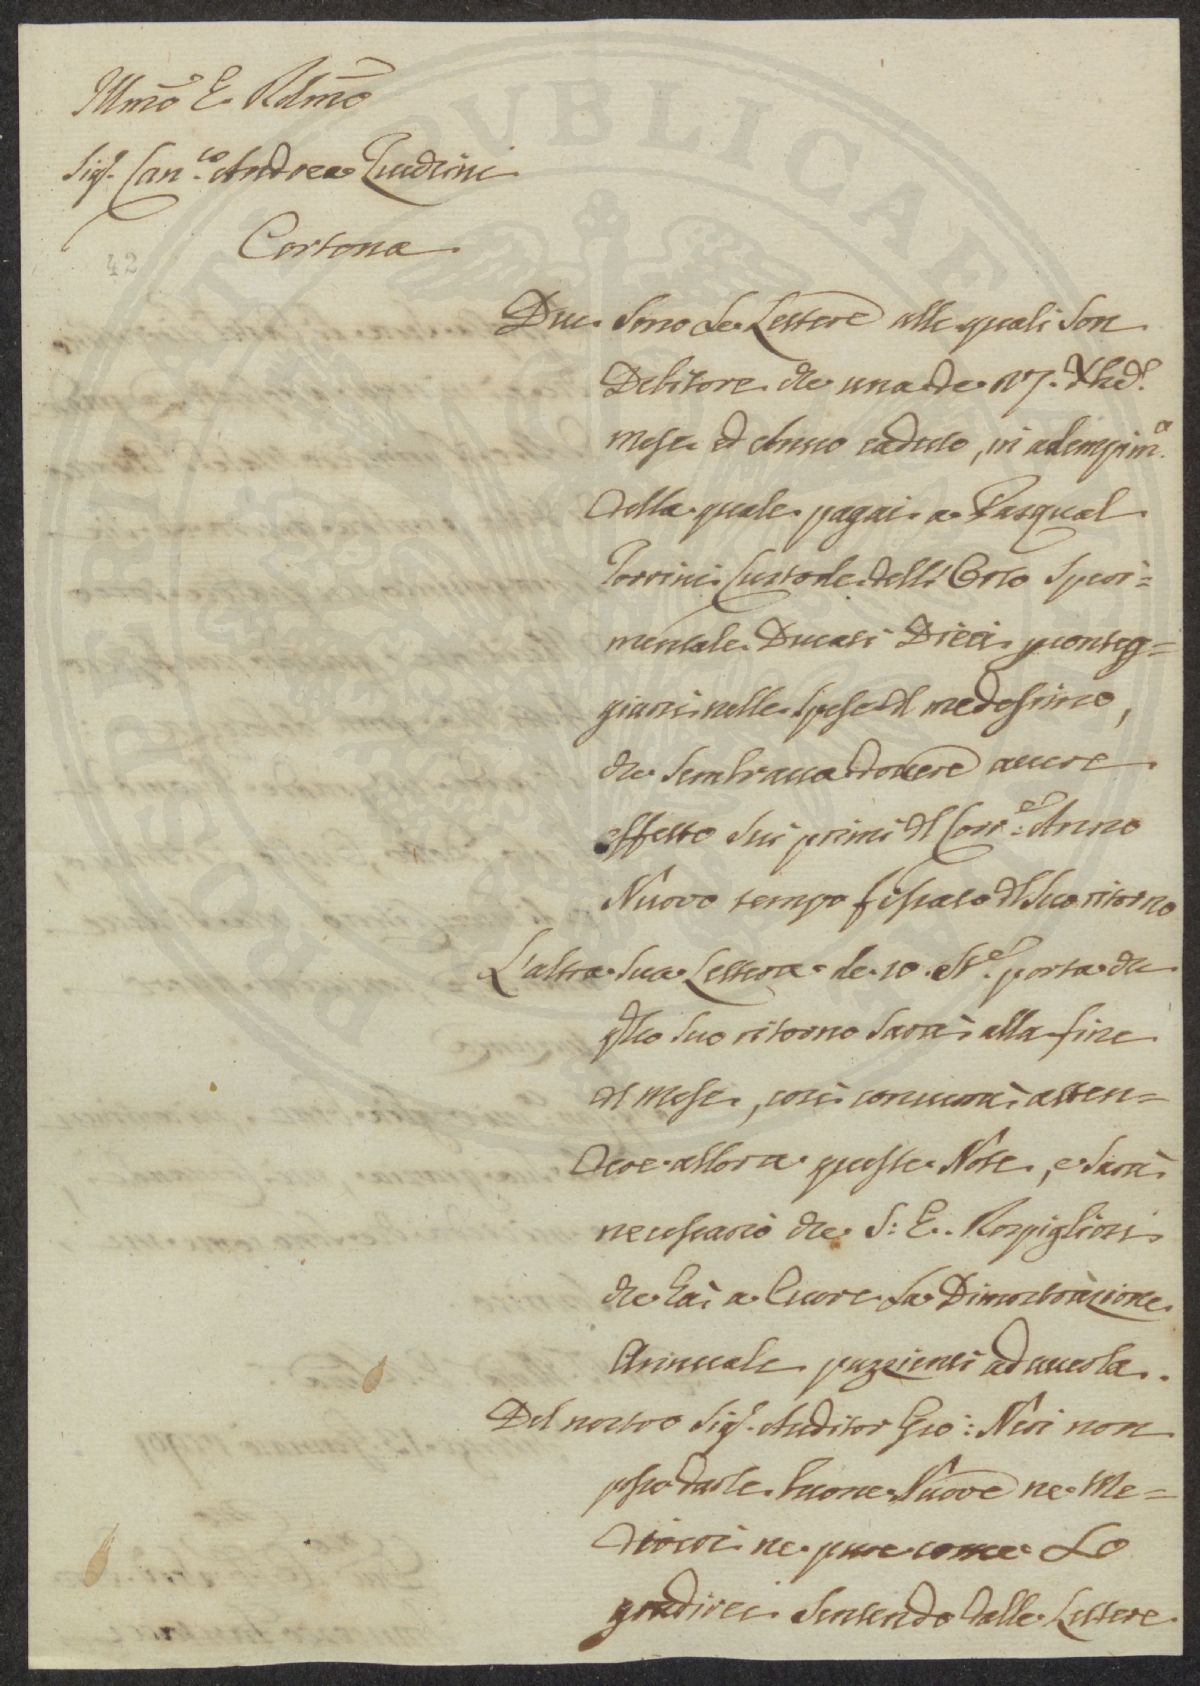 Illmo E Rdmo
Sigr. Canco. Andrea Zucchini
Cortona
42
Due Sono Le Lettere alle quali Son
Debitore che una de 17. Xbe d.
mese ed Anno caduto, in adempim.o
della quale pagai a Pasqual
Torrini Custode dell' Orto Speri=
mentale Ducati Dieci p conteg=
giarsi nelle Spese del medesimo,
che Sembrava dovere avere
effetto Sui primi del Corre. Anno
Nuovo tempo fissato del Suo ritorno
L'altra Sua Lettera de 10. St.e porta che
qsto Suo ritorno Sarà alla fine
del Mese, così converrà atten=
dere allora queste Note, e Sarà
necessario che S: E. Rospigliosi
che hà a Cuore La Dimostrazione
Annuale pazzienti ad averla.
Del nostro Sigr. Auditor Gio: Neri non
posso darle buone Nuove ne Me=
diocri ne pure come Lo
gradirei Sentendo dalle Lettere
PUBLICAE